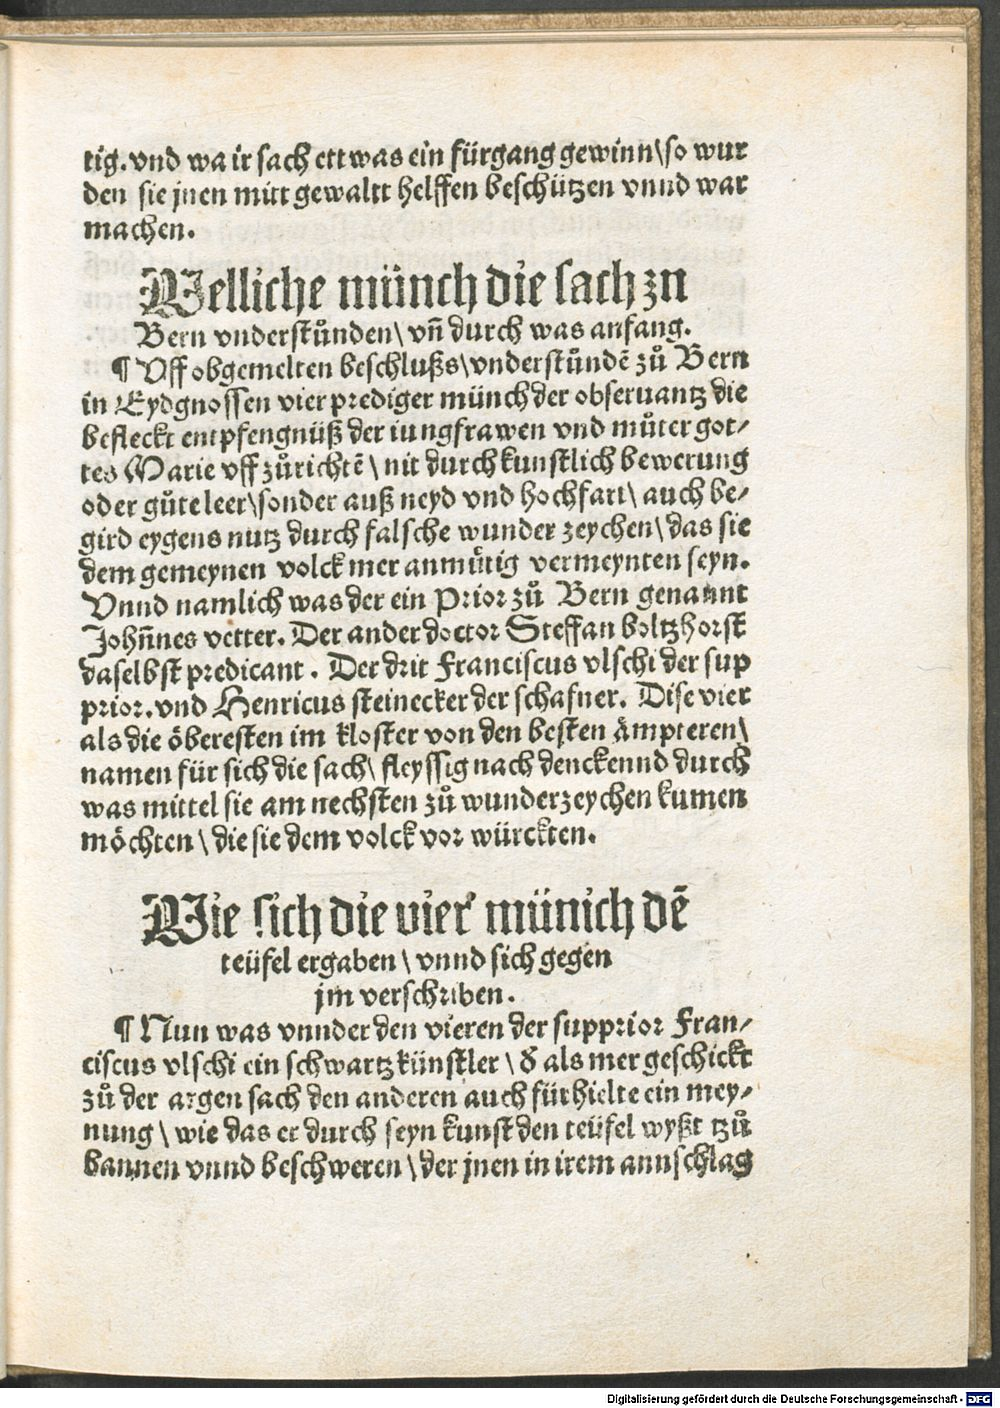 tig. vnd wa ir sach ettwas ein fürgang gewinn\so wur
den sie jnen mitt gewaltt helffen beschützen vnnd war
machen.
Welliche münch die sach zu
Bern vnderstůnden\ vn̄ durch was anfang.
¶ Vff obgemelten beschlußs\vnderstůndē zů Bern
in Eydgnossen vier prediger münch der obseruantz die
befleckt entpfengnüß der iungfrawen vnd můter got⸗
tes Marie vff zůrichtē\ nit durch kunstlich bewerung
oder gůte leer\sonder auß neyd vnd hochfart\ auch be⸗
gird eygens nutz durch falsche wunder zeychen\das sie
dem gemeynen volck mer anmůtig vermeynten seyn.
Vnnd namlich was der ein Prior zů Bern genannt
Joh̄nnes vetter. Der ander doctor Steffan boltzhorst
daselbst predicant. Der drit Franciscus vlschi der sup
prior. vnd Henricus steinecker der schafner. Dise vier
als die öberesten im kloster von den besten ämpteren\
namen für sich die sach\ fleyssig nach denckennd durch
was mittel sie am nechsten zů wunderzeychen kumen
möchten\ die sie dem volck vor würckten.
Wie sich die vier münich dē
teüfel ergaben\ vnnd sich gegen
jm verschriben.
¶ Nun was vnnder den vieren der supprior Fran⸗
ciscus vlschi ein schwartz künstler\ ď als mer geschickt
zů der argen sach den anderen auch fürhielte ein mey⸗
nung\ wie das er durch seyn kunst den teüfel wyßt tzů
bannen vnnd beschweren\ der jnen in irem annschlag
Digitalisierung gefördert durch die Deutsche Forschungsgemeinschaft - DFG